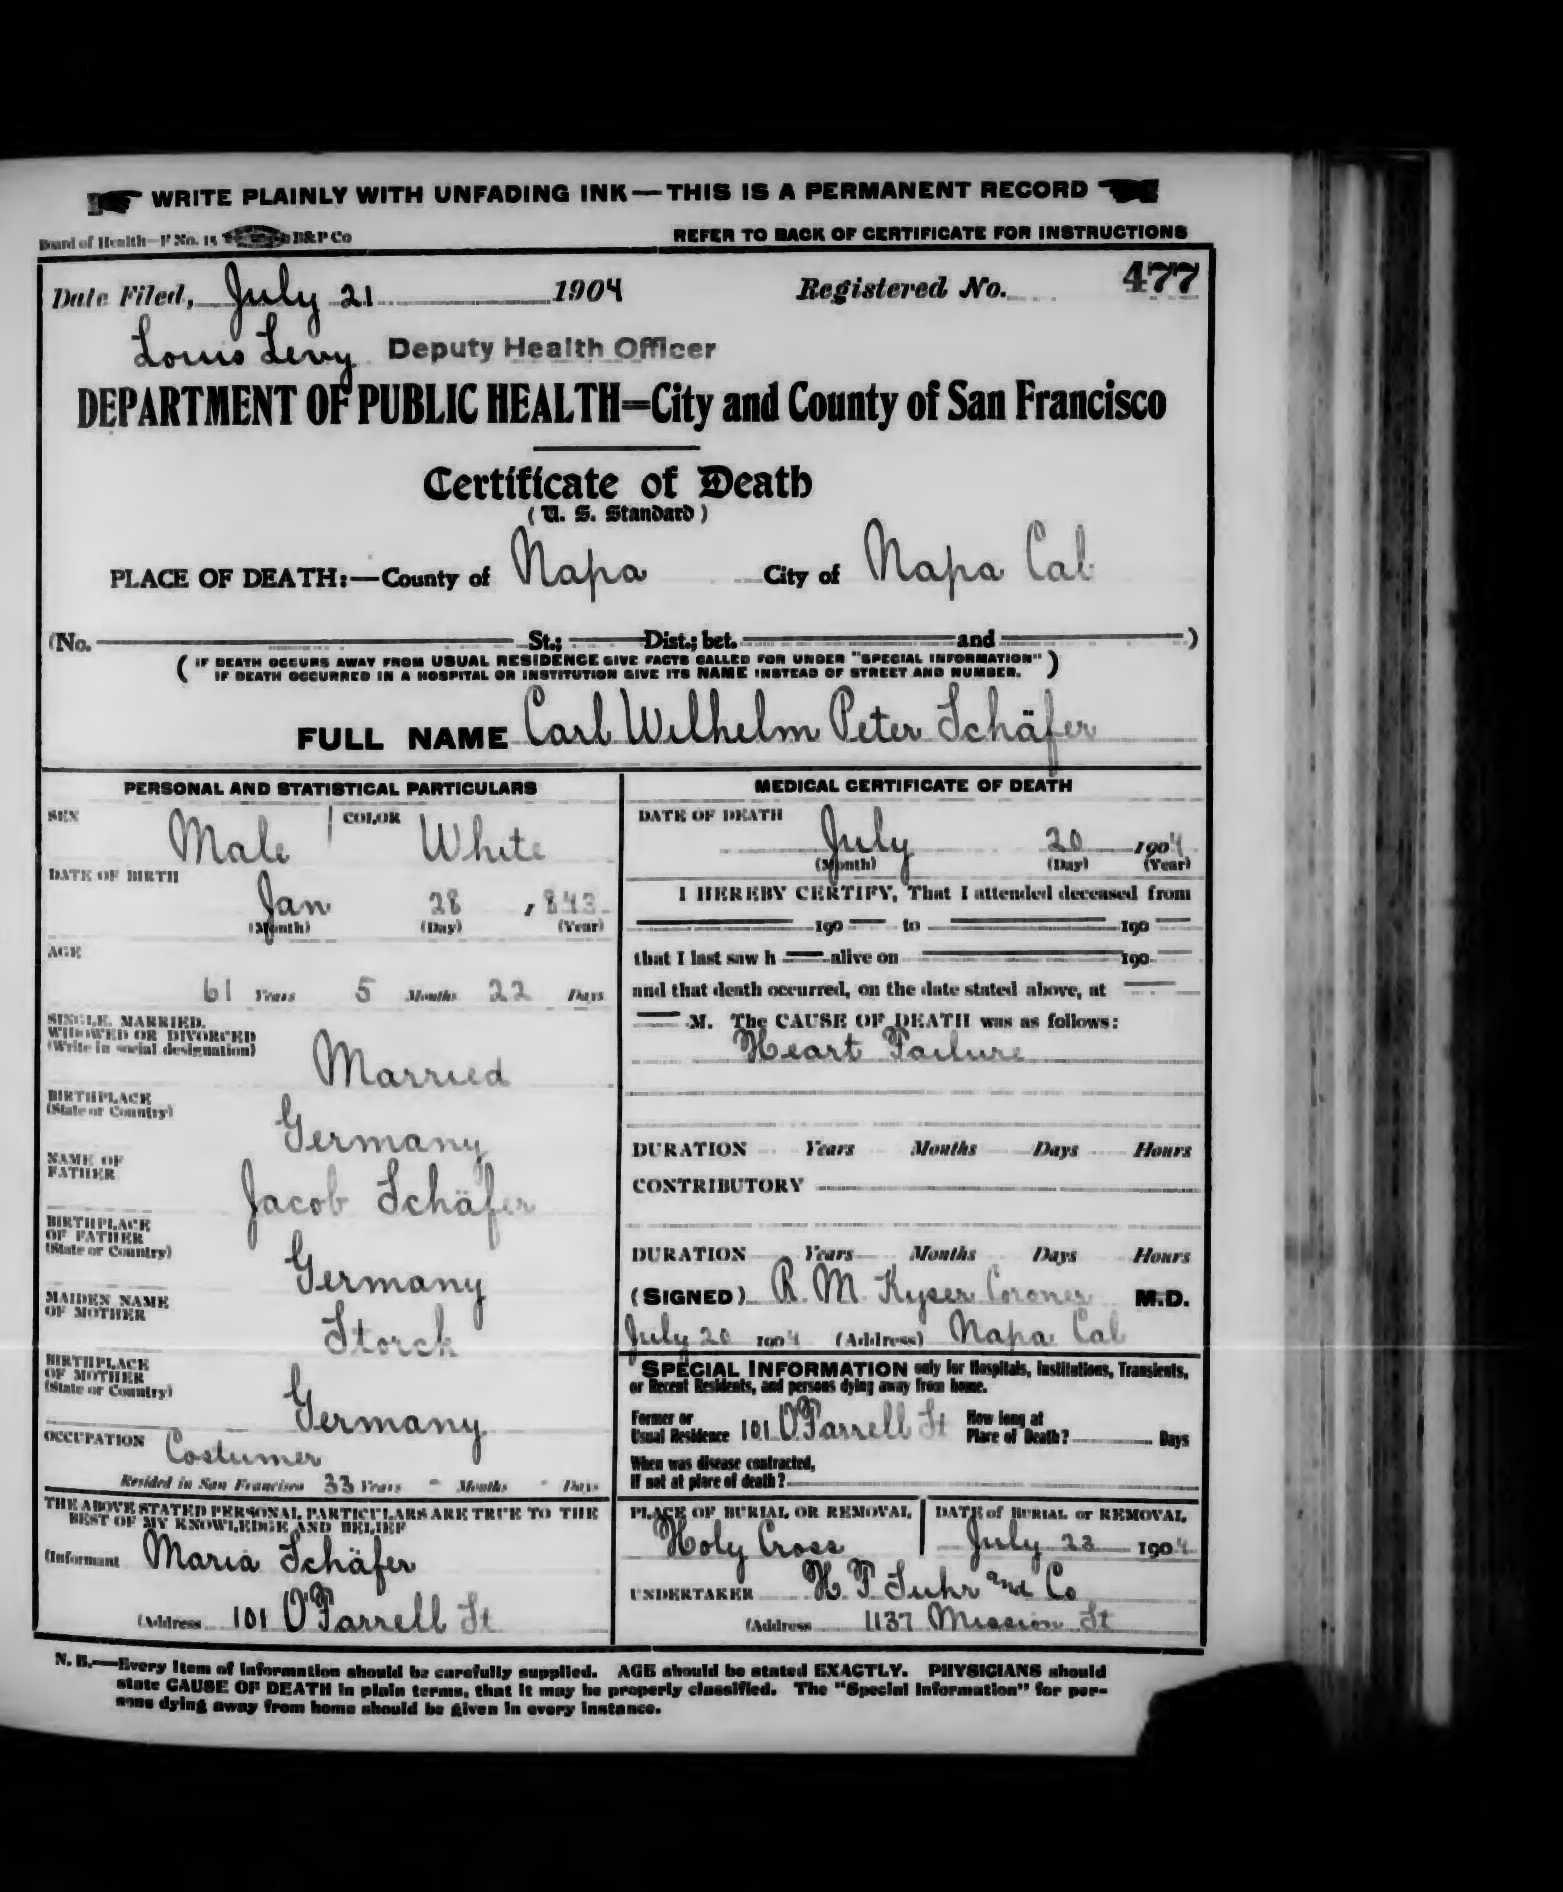 WRITE PLAINLY WITH UNFADING INK—THIS IS A PERMANENT RECORD
Board of Health—F No. 15 B&P Co
REFER TO BACK OF CERTIFICATE FOR INSTRUCTIONS
Date Filed, July 21 1904 Registered No. 477
Louis Levy Deputy Health Officer
DEPARTMENT OF PUBLIC HEALTH=City and County of San Francisco
Certificate of Death
(U. S. Standard)
PLACE OF DEATH:—County of Napa City of Napa Cal
(No. St.; Dist.; bet. and )
(IF DEATH OCCURS AWAY FROM USUAL RESIDENCE GIVE FACTS CALLED FOR UNDER "SPECIAL INFORMATION"
IF DEATH OCCURRED IN A HOSPITAL OR INSTITUTION GIVE ITS NAME INSTEAD OF STREET AND NUMBER.)
FULL NAME Carl Wilhelm Peter Schäfer
PERSONAL AND STATISTICAL PARTICULARS
SEX Male COLOR White
DATE OF BIRTH
Jan 28 , 843
(Month) (Day) (Year)
AGE
61 Years 5 Months 22 Days
SINGLE, MARRIED,
WIDOWED OR DIVORCED
(Write in social designation) Married
BIRTHPLACE
(State or Country) Germany
NAME OF
FATHER Jacob Schäfer
BIRTHPLACE
OF FATHER
(State or Country) Germany
MAIDEN NAME
OF MOTHER Storck
BIRTHPLACE
OF MOTHER
(State or Country) Germany
OCCUPATION Costumer
Resided in San Francisco 33 Years - Months - Days
THE ABOVE STATED PERSONAL PARTICULARS ARE TRUE TO THE
BEST OF MY KNOWLEDGE AND BELIEF
(Informant Maria Schäfer
(Address 101 O'Farrell St
MEDICAL CERTIFICATE OF DEATH
DATE OF DEATH
July 20 1904
(Month) (Day) (Year)
I HEREBY CERTIFY, That I attended deceased from
190 to 190
that I last saw h alive on 190
and that death occurred, on the date stated above, at
M. The CAUSE OF DEATH was as follows:
Heart Failure
DURATION Years Months Days Hours
CONTRIBUTORY
DURATION Years Months Days Hours
(SIGNED) R. M. Kyser Coroner M.D.
July 20 1904 (Address) Napa Cal
SPECIAL INFORMATION only for Hospitals, Institutions, Transients,
or Recent Residents, and persons dying away from home.
Former or
Usual Residence 101 O'Farrell St How long at
Place of Death? Days
When was disease contracted,
If not at place of death?
PLACE OF BURIAL OR REMOVAL DATE of BURIAL or REMOVAL
Holy Cross July 23 1904
UNDERTAKER H. F. Suhr and Co
(Address 1137 Mission St
N. B.—Every item of information should be carefully supplied. AGE should be stated EXACTLY. PHYSICIANS should
state CAUSE OF DEATH in plain terms, that it may be properly classified. The "Special Information" for per-
sons dying away from home should be given in every instance.